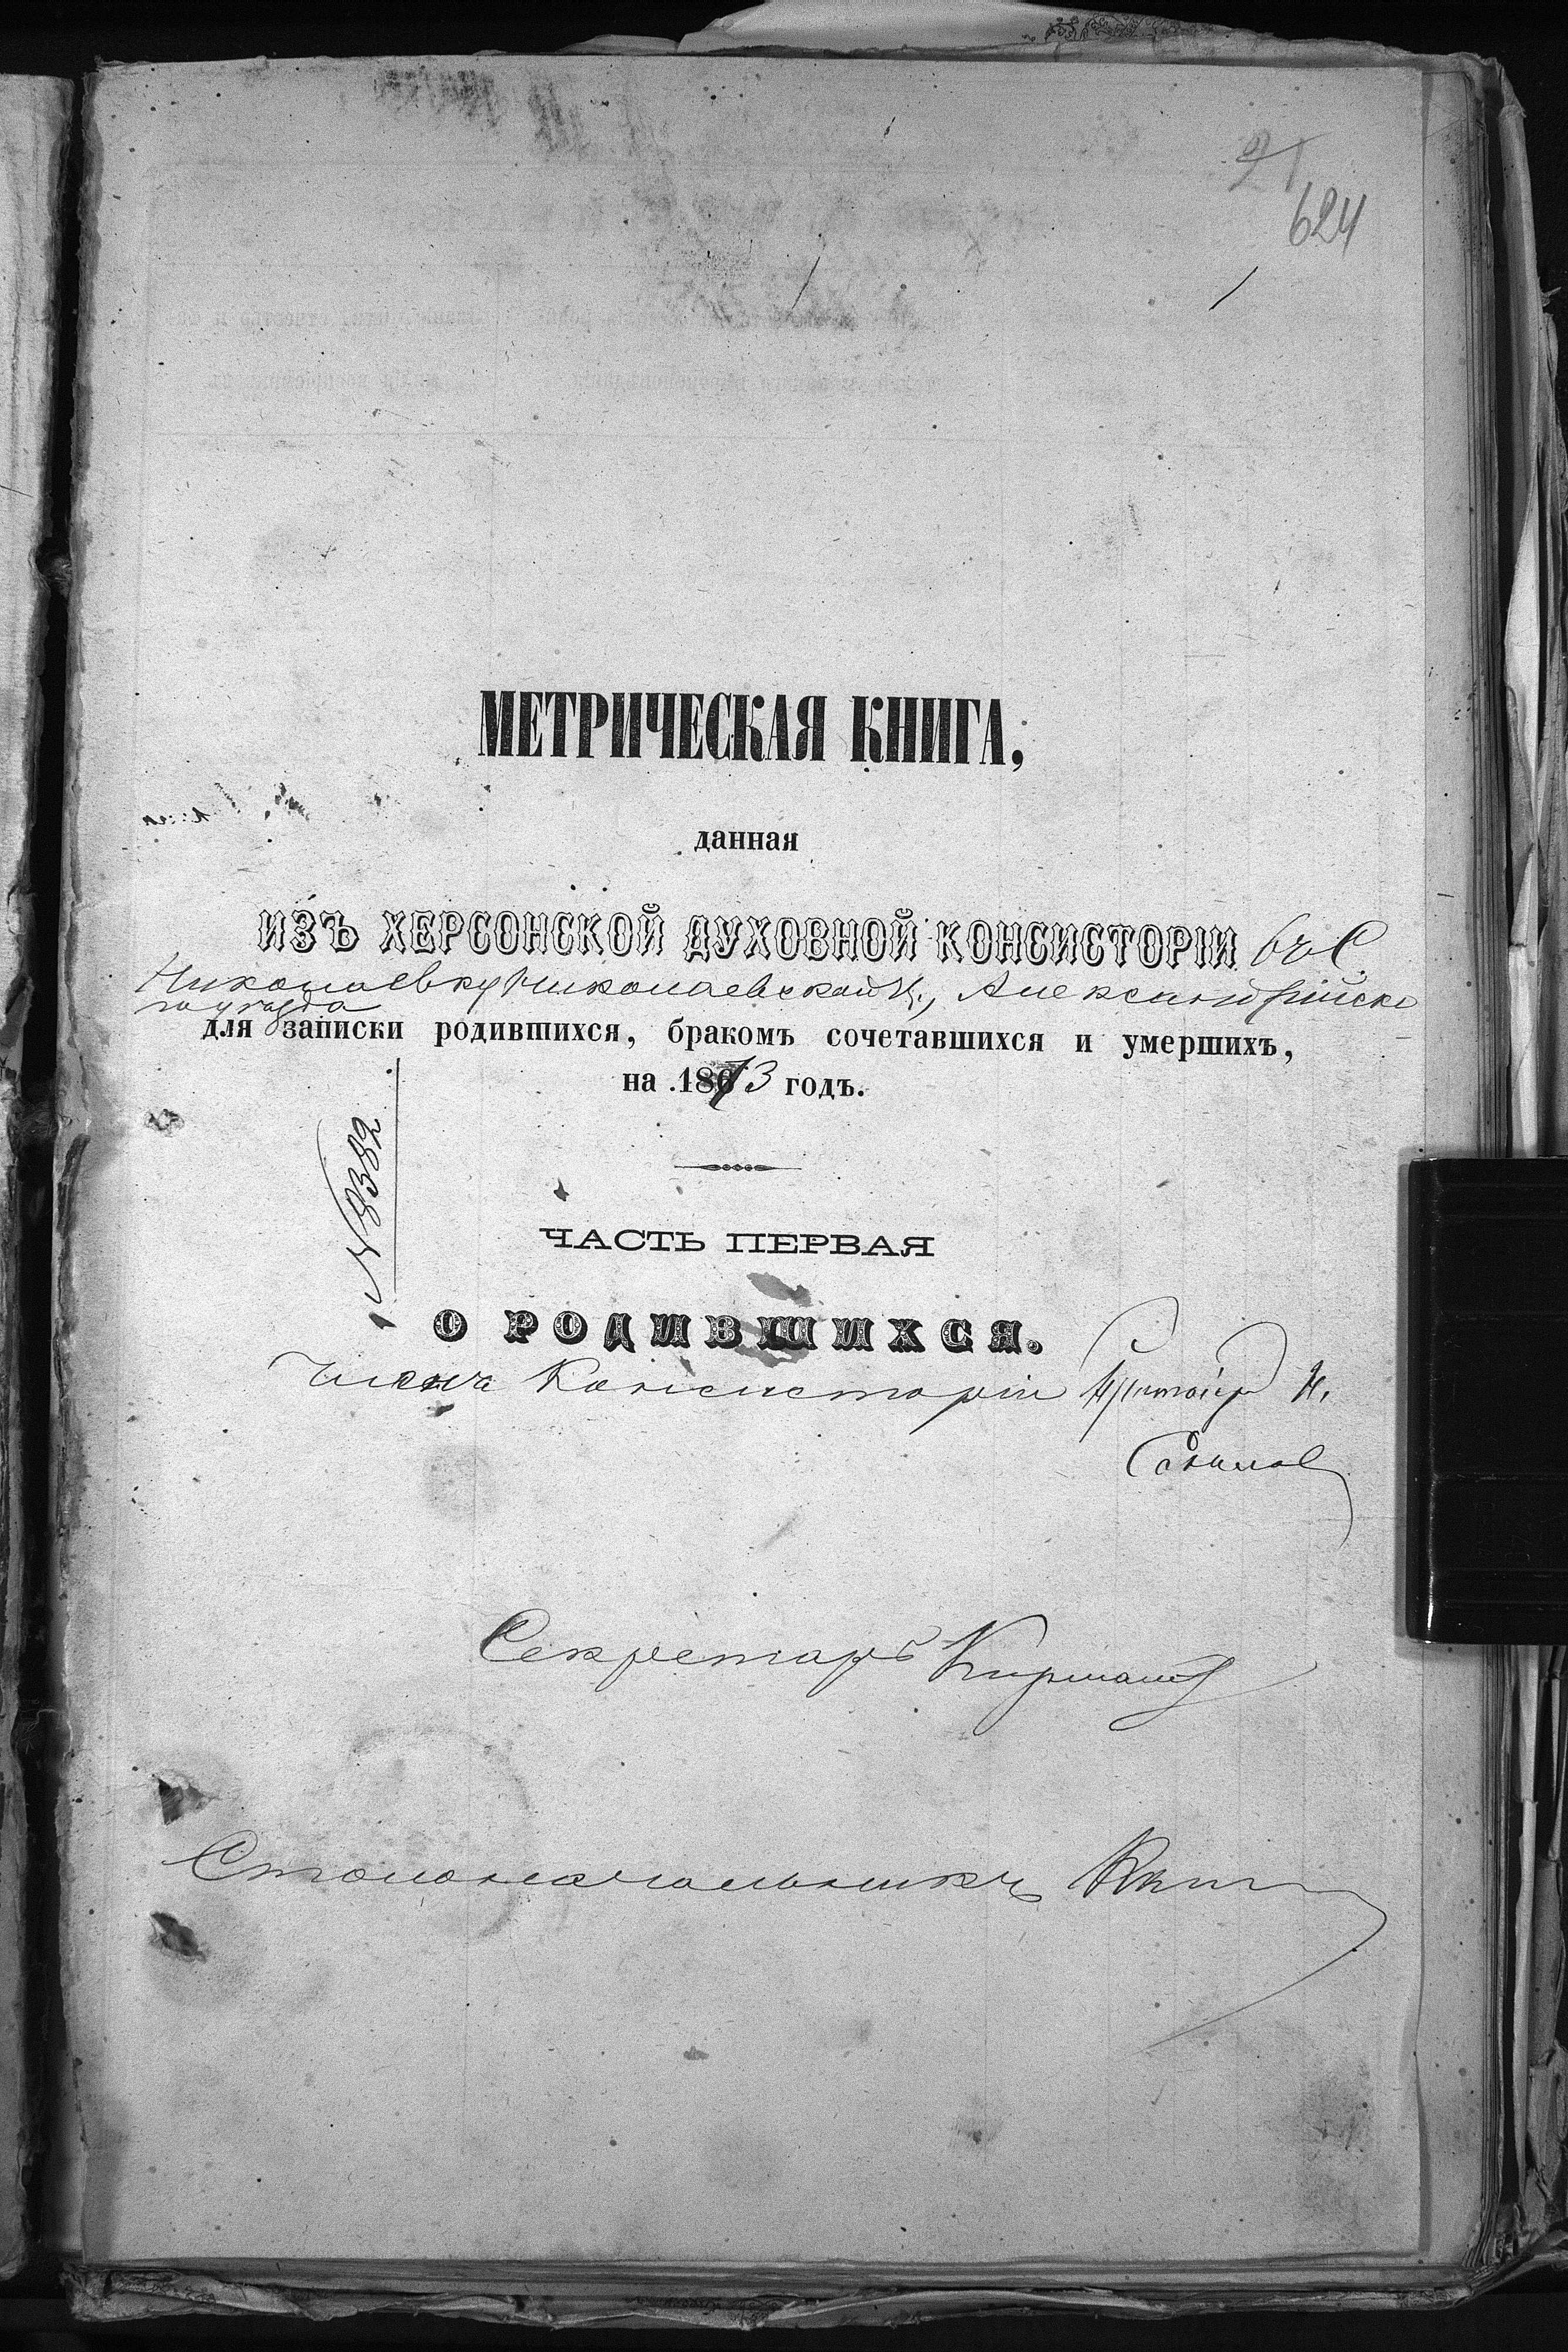 21
624
МЕТРИЧЕСКАЯ КНИГА,
данная
ИЗЪ ХЕРСОНСКОЙ ДУХОВНОЙ КОНСИСТОРІИ въ С.
Николаевку Николаевской ц., Александрійска
го уѣзда
для записки родившихся, бракомъ сочетавшихся и умершихъ,
на 1873 годъ.
№ 8382
ЧАСТЬ ПЕРВАЯ
О РОДИВШИХСЯ.
Членъ Консисторіи
Секретарь
Столоначальникъ